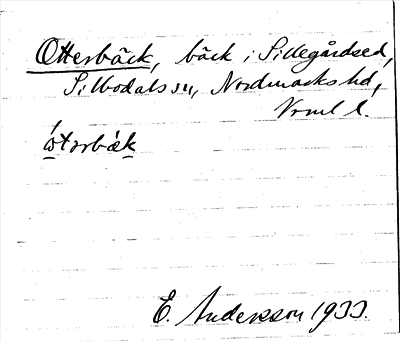 Otterbäck, bäck i Sillegårdsed,
Silbodals sn, Nordmarks hd,
Vrml l.
ótorbæ̀k
E. Andersson 1933.